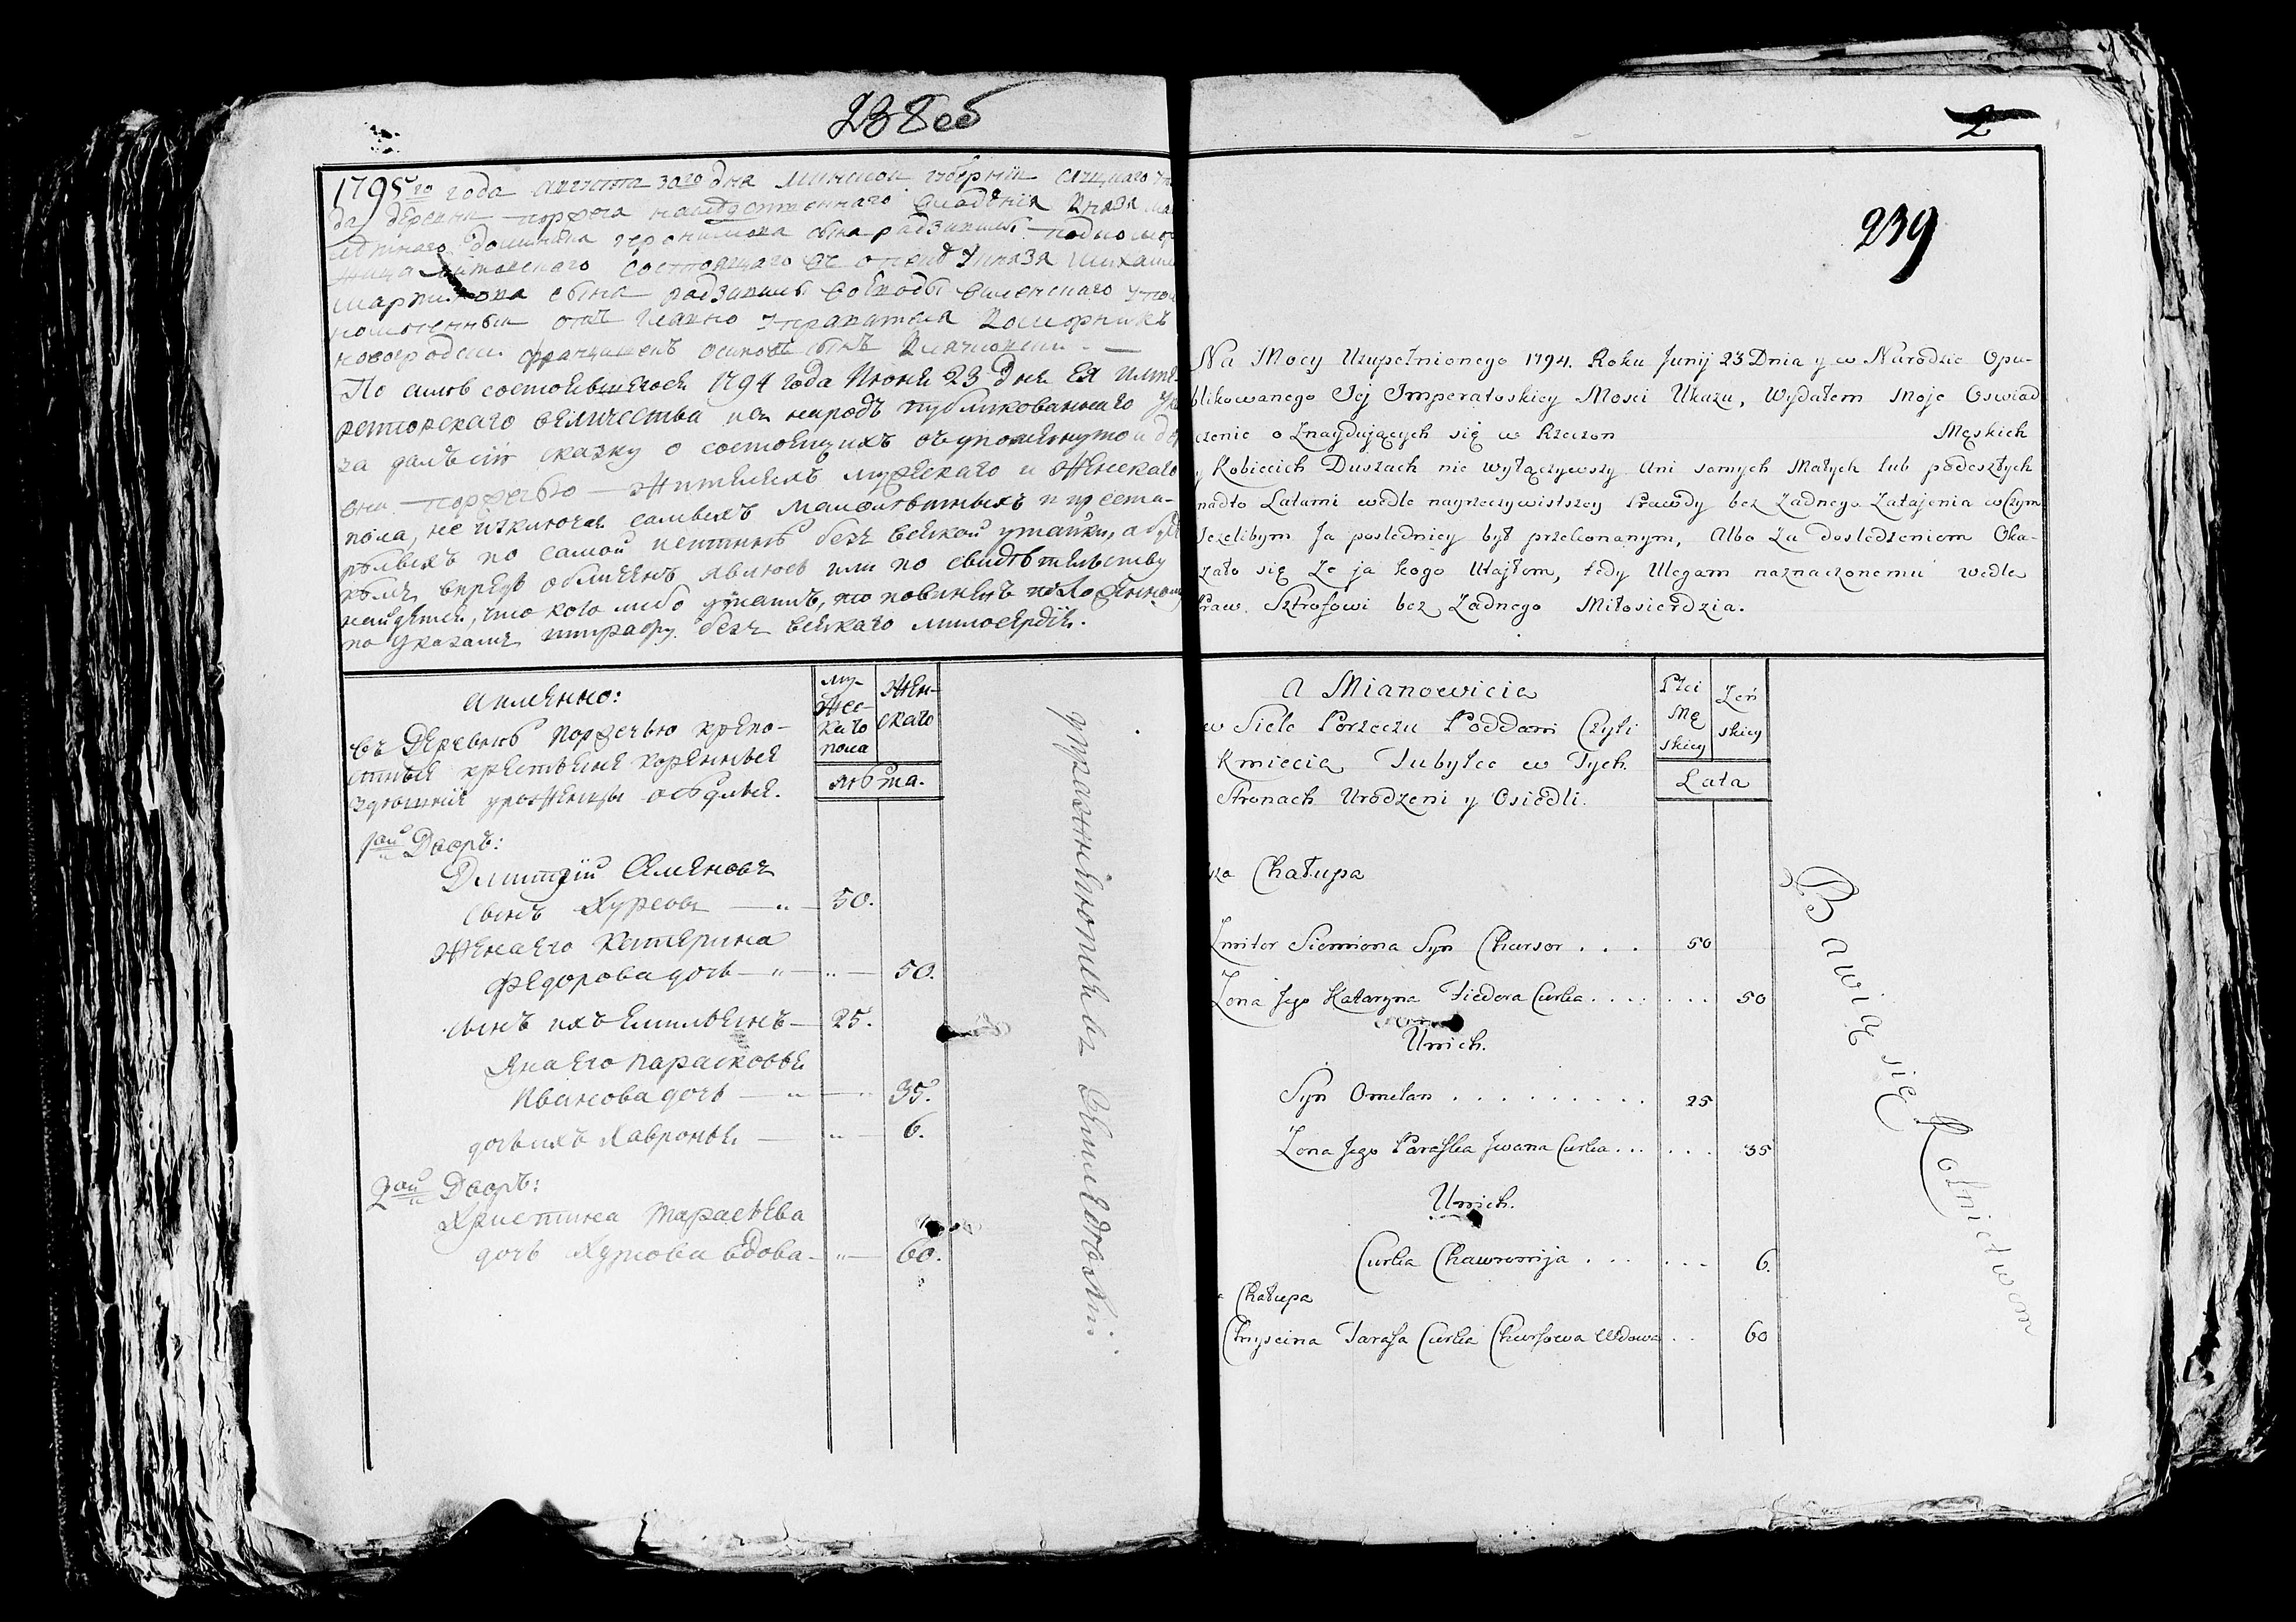 238 об
1795го года августа 30го дня минской губернии слуцкаго
деревни поречя наследственнаго владения Князя
доминика геронимова сына радзивила подкомо
литовскаго состоящаго въ опеке Князя михаила
мартинова сына радзивила воеводы виленскаго упол
номоченный отъ Коморникъ
новогродски францишекъ осиповъ сынъ
По силѣ состоявшегося 1794 года Июня 23 дня Ея импе-
раторскаго величества въ народъ публикованнаго ука
за далъ сию скаску о состоящихъ въ упомянутой де
вни поречью жителяхъ мужескаго и женскаго
пола, не изключая самыхъ малолѣтныхъ и преста-
рѣлыхъ по самой истинѣ безъ всякой утайки, а
впредь обличенъ явлюсь или по свидѣтельству
найдется, что кого либо утаилъ, то повиненъ положенному
по указамъ штрафу безъ всякаго милосердія.
имянно:
въ деревнѣ поречью крепо-
стныя крестьяне коренныя
здѣшнія уроженцы осѣдлыя.
му-
жес-
каго
пола
жен-
скаго
лѣта.
1ой Дворъ:
Дмитрій Семеновъ
сынъ Хурсовъ 50.
жена его Катерина
Федорова дочь 50.
сынъ ихъ Емильянъ 25.
жена его парасковья
Иванова дочь 35.
дочь ихъ Хавронья 6.
2ой Дворъ:
Христина Тарасьева
дочь Хурсова вдова 60.
упражняются въ земледѣліи.
2
239
Na Mocy Uzupełnionego 1794. Roku Junij 23 Dnia y w Narodzie Opu-
blikowanego Jej Imperatoskiey Mosci Ukazu, Wydałem Moje Oswiad
czenie o Znaydujących się w Rzeczon Męskich
y Kobiecich Duszach nie wyłączywszy Ani samych Małych lub podeszłych
nadto Latami wedle nayrzeczywistszey Prawdy bez Zadnego Zatajenia w Czym
Jezelibym Ja poslednicy był przekonanym, Albo Za dosledzeniem Oka-
zało się Ze ja kogo Utajłem, tedy Ulegam naznaczonemu wedle
Praw Sztrofowi bez Zadnego Miłosierdzia.
A Mianowicie
w Siele Porzeczu Poddani Czyli
Kmiecia Tubylce w Tych
Stronach Urodzeni y Osiedli.
Płci
Mę
skiey
Zeń
skiey
Lata
Chałupa
Zmitor Siemiona Syn Chursor . . . 50
Zona Jego Kataryna Fiedora Curka . . . . . . . 50
Unich.
Syn Omelan . . . . . . . . . 25
Zona Jego Paraska Jwana Curka . . . . . . 35
Unich.
Curka Chawronija . . . . . . 6.
Chałupa
Chryscina Tarasa Curka Chursowa Wdowa . . 60
Bawią się Rolnictwem